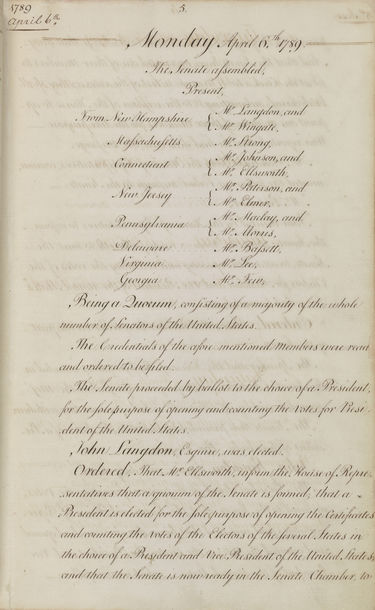 1789
April 6th
5.
Monday April 6th 1789.
The Senate assembled,
Present,
From New Hampshire { Mr. Langdon, and
Mr. Wingate,
Massachusetts Mr. Strong,
Connecticut { Mr. Johnson, and
Mr. Ellsworth,
New Jersey { Mr. Paterson, and
Mr. Elmer,
Pennsylvania { Mr. Maclay, and
Mr. Morris,
Delaware Mr. Bassett,
Virginia Mr. Lee,
Georgia Mr. Few,
Being a Quorum, consisting of a majority of the whole
number of Senators of the United States.
The Credentials of the afore mentioned Members were read
and ordered to be filed.
The Senate proceeded by ballot to the choice of a President,
for the sole purpose of opening and counting the Votes for Presi-
dent of the United States.
John Langdon, Esquire, was elected.
Ordered, That Mr. Ellsworth, inform the House of Repre-
sentatives that a quorum of the Senate is formed, that a
President is elected for the sole purpose of opening the Certificates
and counting the votes of the Electors of the several States in
the choice of a President and Vice President of the United States,
and that the Senate is now ready in the Senate Chamber to